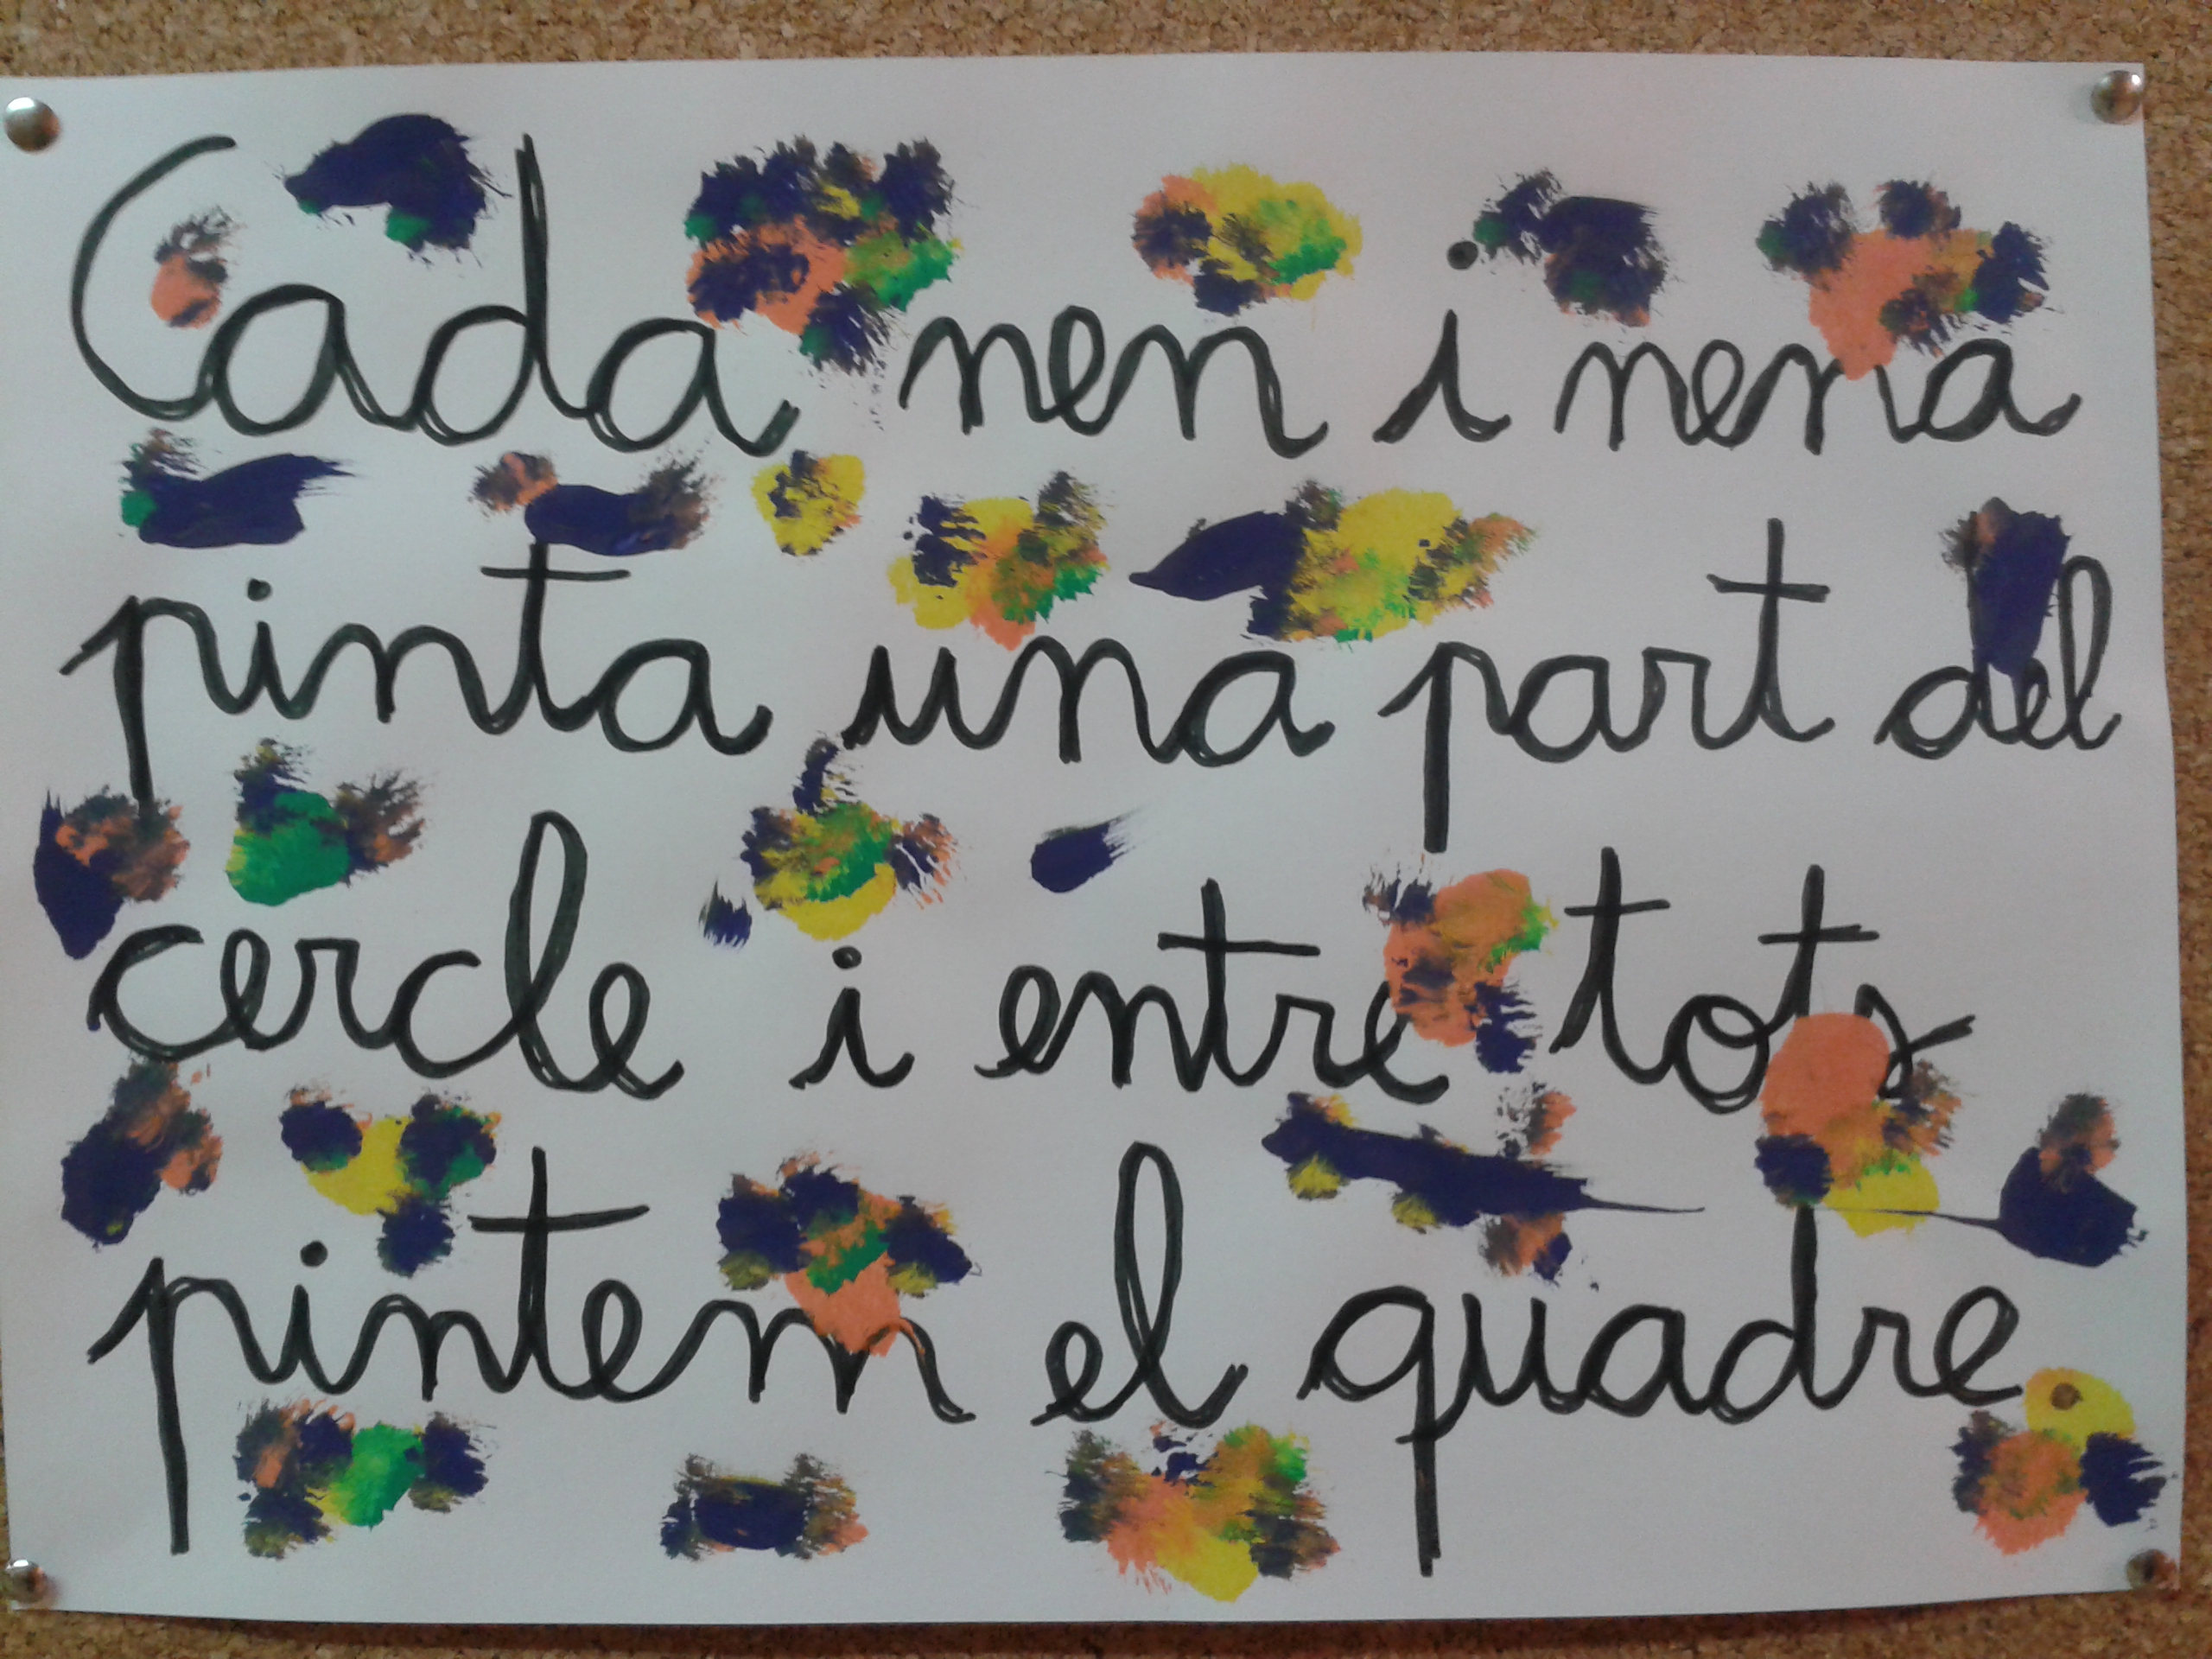 Cada nen i nena
pinta una part del
cercle i entre tots
pintem el quadre